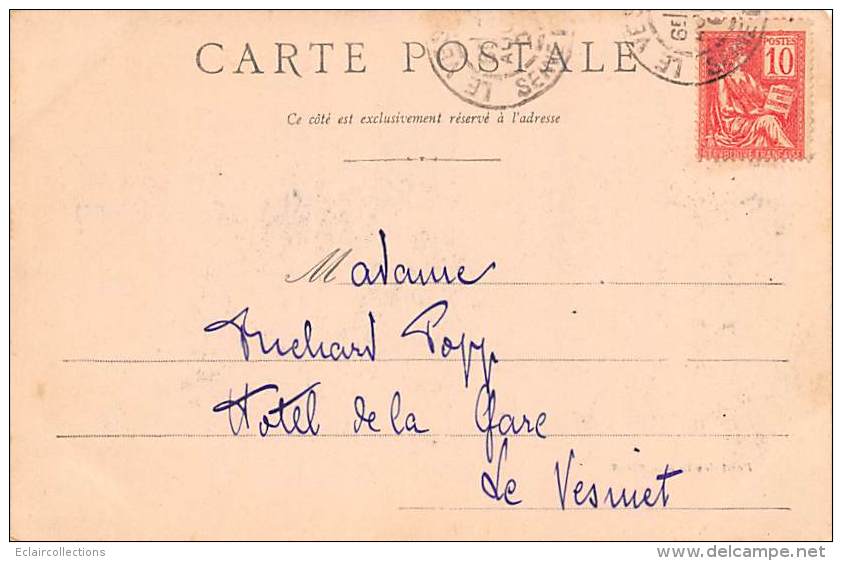 CARTE POSTALE
Ce côté est exclusivement réservé à l'adresse
POSTES
10
RÉPUBLIQUE FRANÇAISE
LE VES
LE VES
Madame
Richard Popp
Hotel de la Gare
Le Vesinet
Eclaircollections
www.delcampe.net